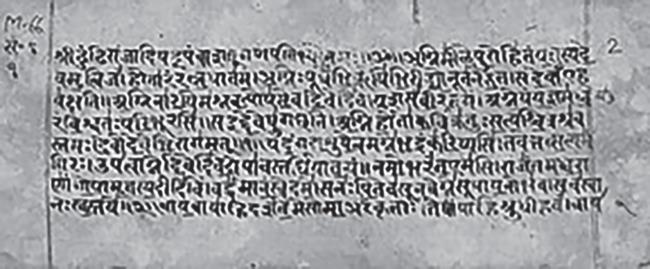 M-66
2
नमः ॥ अग्निमीळे पुरोहितं यज्ञस्य दे
वमृत्विजं। होतारं रत्नधातमं॥ अग्निः पूर्वेभिर्ऋषिभिरीड्यो नूतनैरुत। स देवाँ एह
वक्षति॥ अग्निना रयिमश्नवत्पोषमेव दिवेदिवे। यशसं वीरवत्तमं॥ अग्ने यं यज्ञमध्व
रं विश्वतः परिभूरसि। स इद्देवेषु गच्छति॥ अग्निर्होता कविक्रतुः सत्यश्चित्रश्रव
स्तमः। देवो देवेभिरागमत्॥ यदंग दाशुषे त्वमग्ने भद्रं करिष्यसि। तवेत्तत्सत्यमं
गिरः। उप त्वाग्ने दिवेदिवे दोषावस्तर्धिया वयं॥ नमो भरंत एमसि। राजंतमध्वरा
णां गोपामृतस्य दीदिविं। वर्धमानं स्वे दमे। स नः पितेव सूनवेग्ने सूपायनो भव। सचस्वा
नः स्वस्तये॥ २॥ वायवा याहि दर्शतेमे सोमा अरंकृताः। तेषां पाहि श्रुधी हवं। वाय